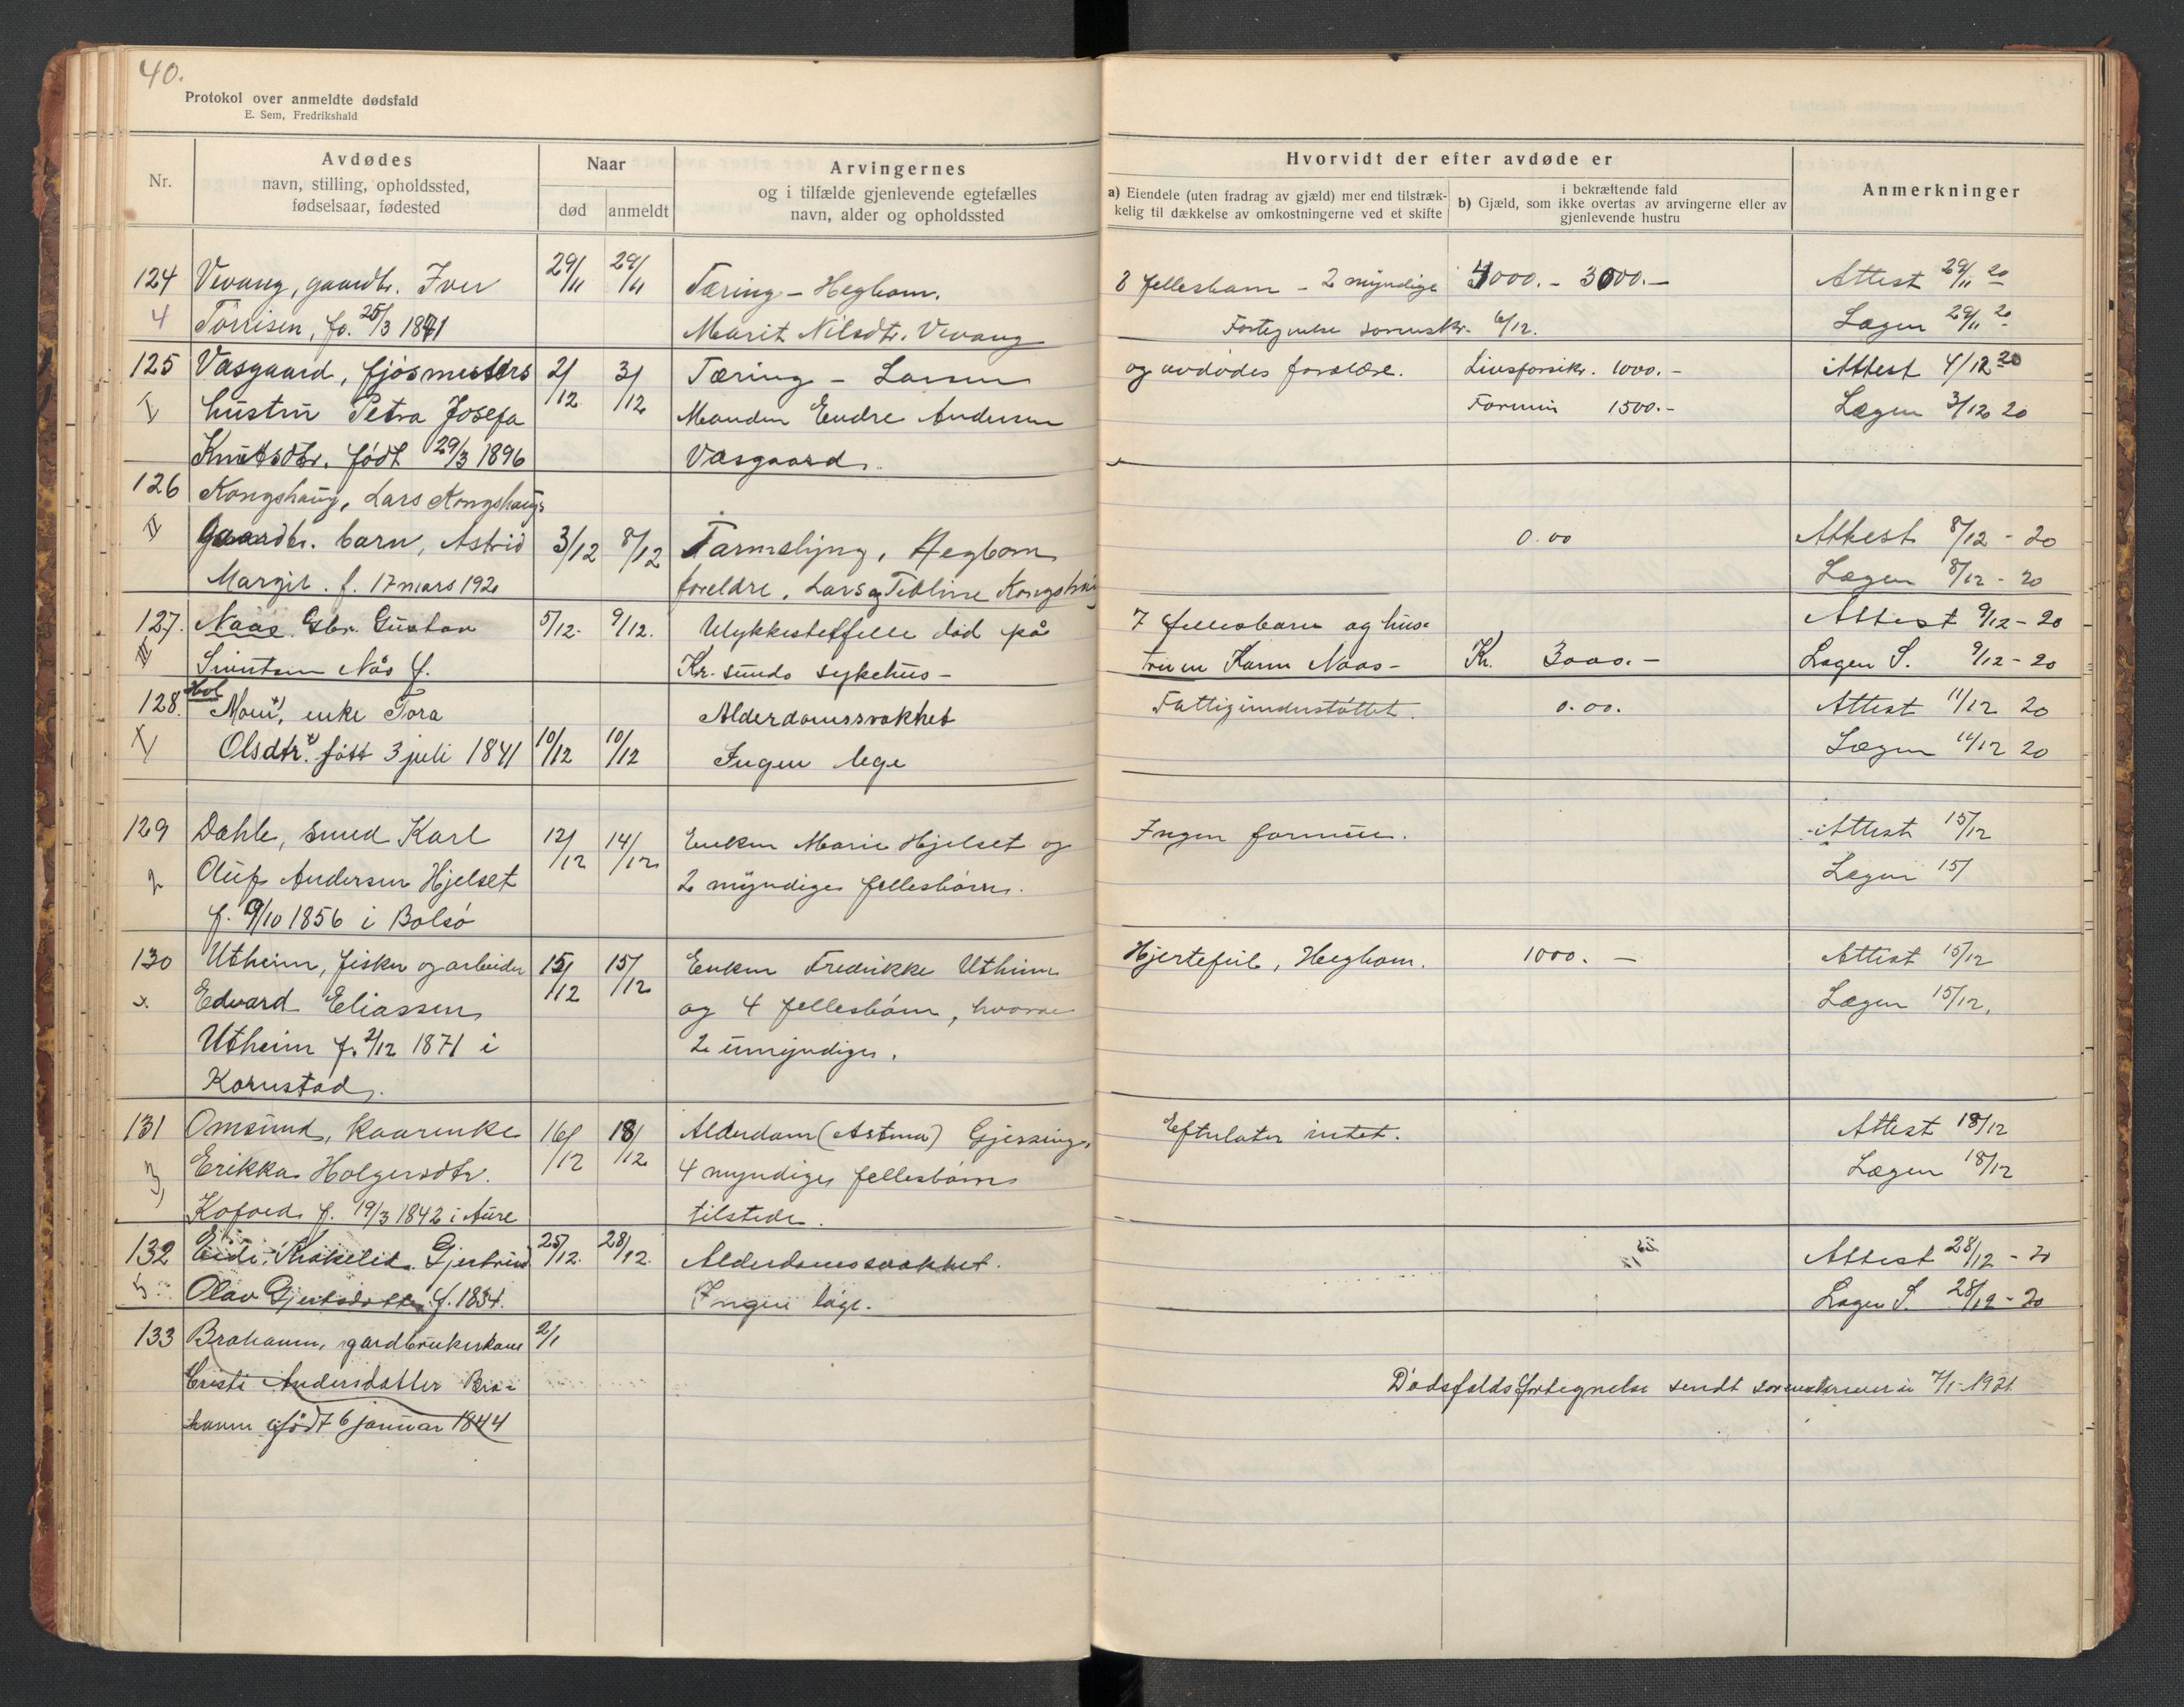 40.
Protokol over anmeldte dødsfald
E. Sem, Fredrikshald
Nr.
Avdødes
navn, stilling, opholdssted,
fødselsaar, fødested
Naar
død
anmeldt
Arvingernes
og i tilfælde gjenlevende egtefælles
navn, alder og opholdssted
Hvorvidt der efter avdøde er
a) Eiendele (uten fradrag av gjæld) mer end tilstræk-
kelig til dækkelse av omkostningerne ved et skifte
i bekræftende fald
b) Gjæld, som ikke overtas av arvingerne eller av
gjenlevende hustru
Anmerkninger
124 Vevang, gaardbr. Iver 29/11 29/11 Tæring - Hegbom. 8 fellesbarn - 2 myndige 4000.- 3000.- Attest 29/11 20
4 Torrisen, fo. 25/3 1871 Marit Nilsdtr. Vevang Fortegnelse sorenskr. 6/12. Lægen 29/11 20
125 Vasgaard, fjøsmesters 2/12 3/12 Tæring - Larsen og avdødes forældre. Livsforsikr. 1000.- Attest 4/12 20
I hustru Petra Josefa Manden Endre Andersen Formue 1500.- Lægen 3/12 20
Knutsdtr. født 29/3 1896 Vasgaard.
126 Kongshaug, Lars Kongshaugs
II Gaardbr. barn, Astrid 3/12 8/12 Tarmslyng, Hegbom 0.00 Attest 8/12 - 20
Margit. f. 17 mars 1920 foreldre, Lars og Kongshaug Lægen 8/12 - 20
127. Naas Gbr. Gustav 5/12. 9/12. Ulykkestilfelle død på 7 fellesbarn og hus- Attest 9/12 - 20
III Nås f. Kr. sunds sykehus - truen Karen Naas - Kr. 3000.- Lægen S. 9/12 - 20
128. Hol
enke Tora Alderdomssvakhet Fattigunderstøttet. 0.00. Attest 11/12 20
Olsdtr. født 3 juli 1841 10/12 10/12 Ingen lege Lægen 11/12 20
129 Dahle, smed Karl 12/12 14/12 Enken Marie Hjelset og Ingen formue. Attest 15/12
2 Oluf Andersen Hjelset 2 myndige fellesbørn. Lægen 15/
f. 9/10 1856 i Bolsø
130 Utheim, fisker og arbeider 15/12 15/12 Enken Fredrikke Utheim Hjertefeil, Hegbom. 1000.- Attest 15/12
Edvard Eliassen og 4 fellesbørn, hvorav Lægen 15/12.
Utheim f. 2/12 1871 i 2 umyndige.
Kornstad.
131 Omsund, kaarenke 16/12 18/12 Alderdom (Astma) Gjessing, Efterlater intet. Attest 18/12
3 Erikka Holgersdtr. 4 myndige fellesbørn Lægen 18/12
Kofoed f. 19/3 1842 i Aure tilstede.
132 Eide, Gjertrud 25/12. 28/12. Alderdomssvakhet. Attest 28/12 - 20
5 Olav Gjertsdatter f. 1834. Ingen læge. Lægen S. 28/12 - 20
133 Brahamn, gardbrukerkone 2/1
Kristi Andersdatter Bra- Dødsfaldsfortegnelse sendt sorenskriveren 7/1 - 1921
hamn født 6 januar 1844